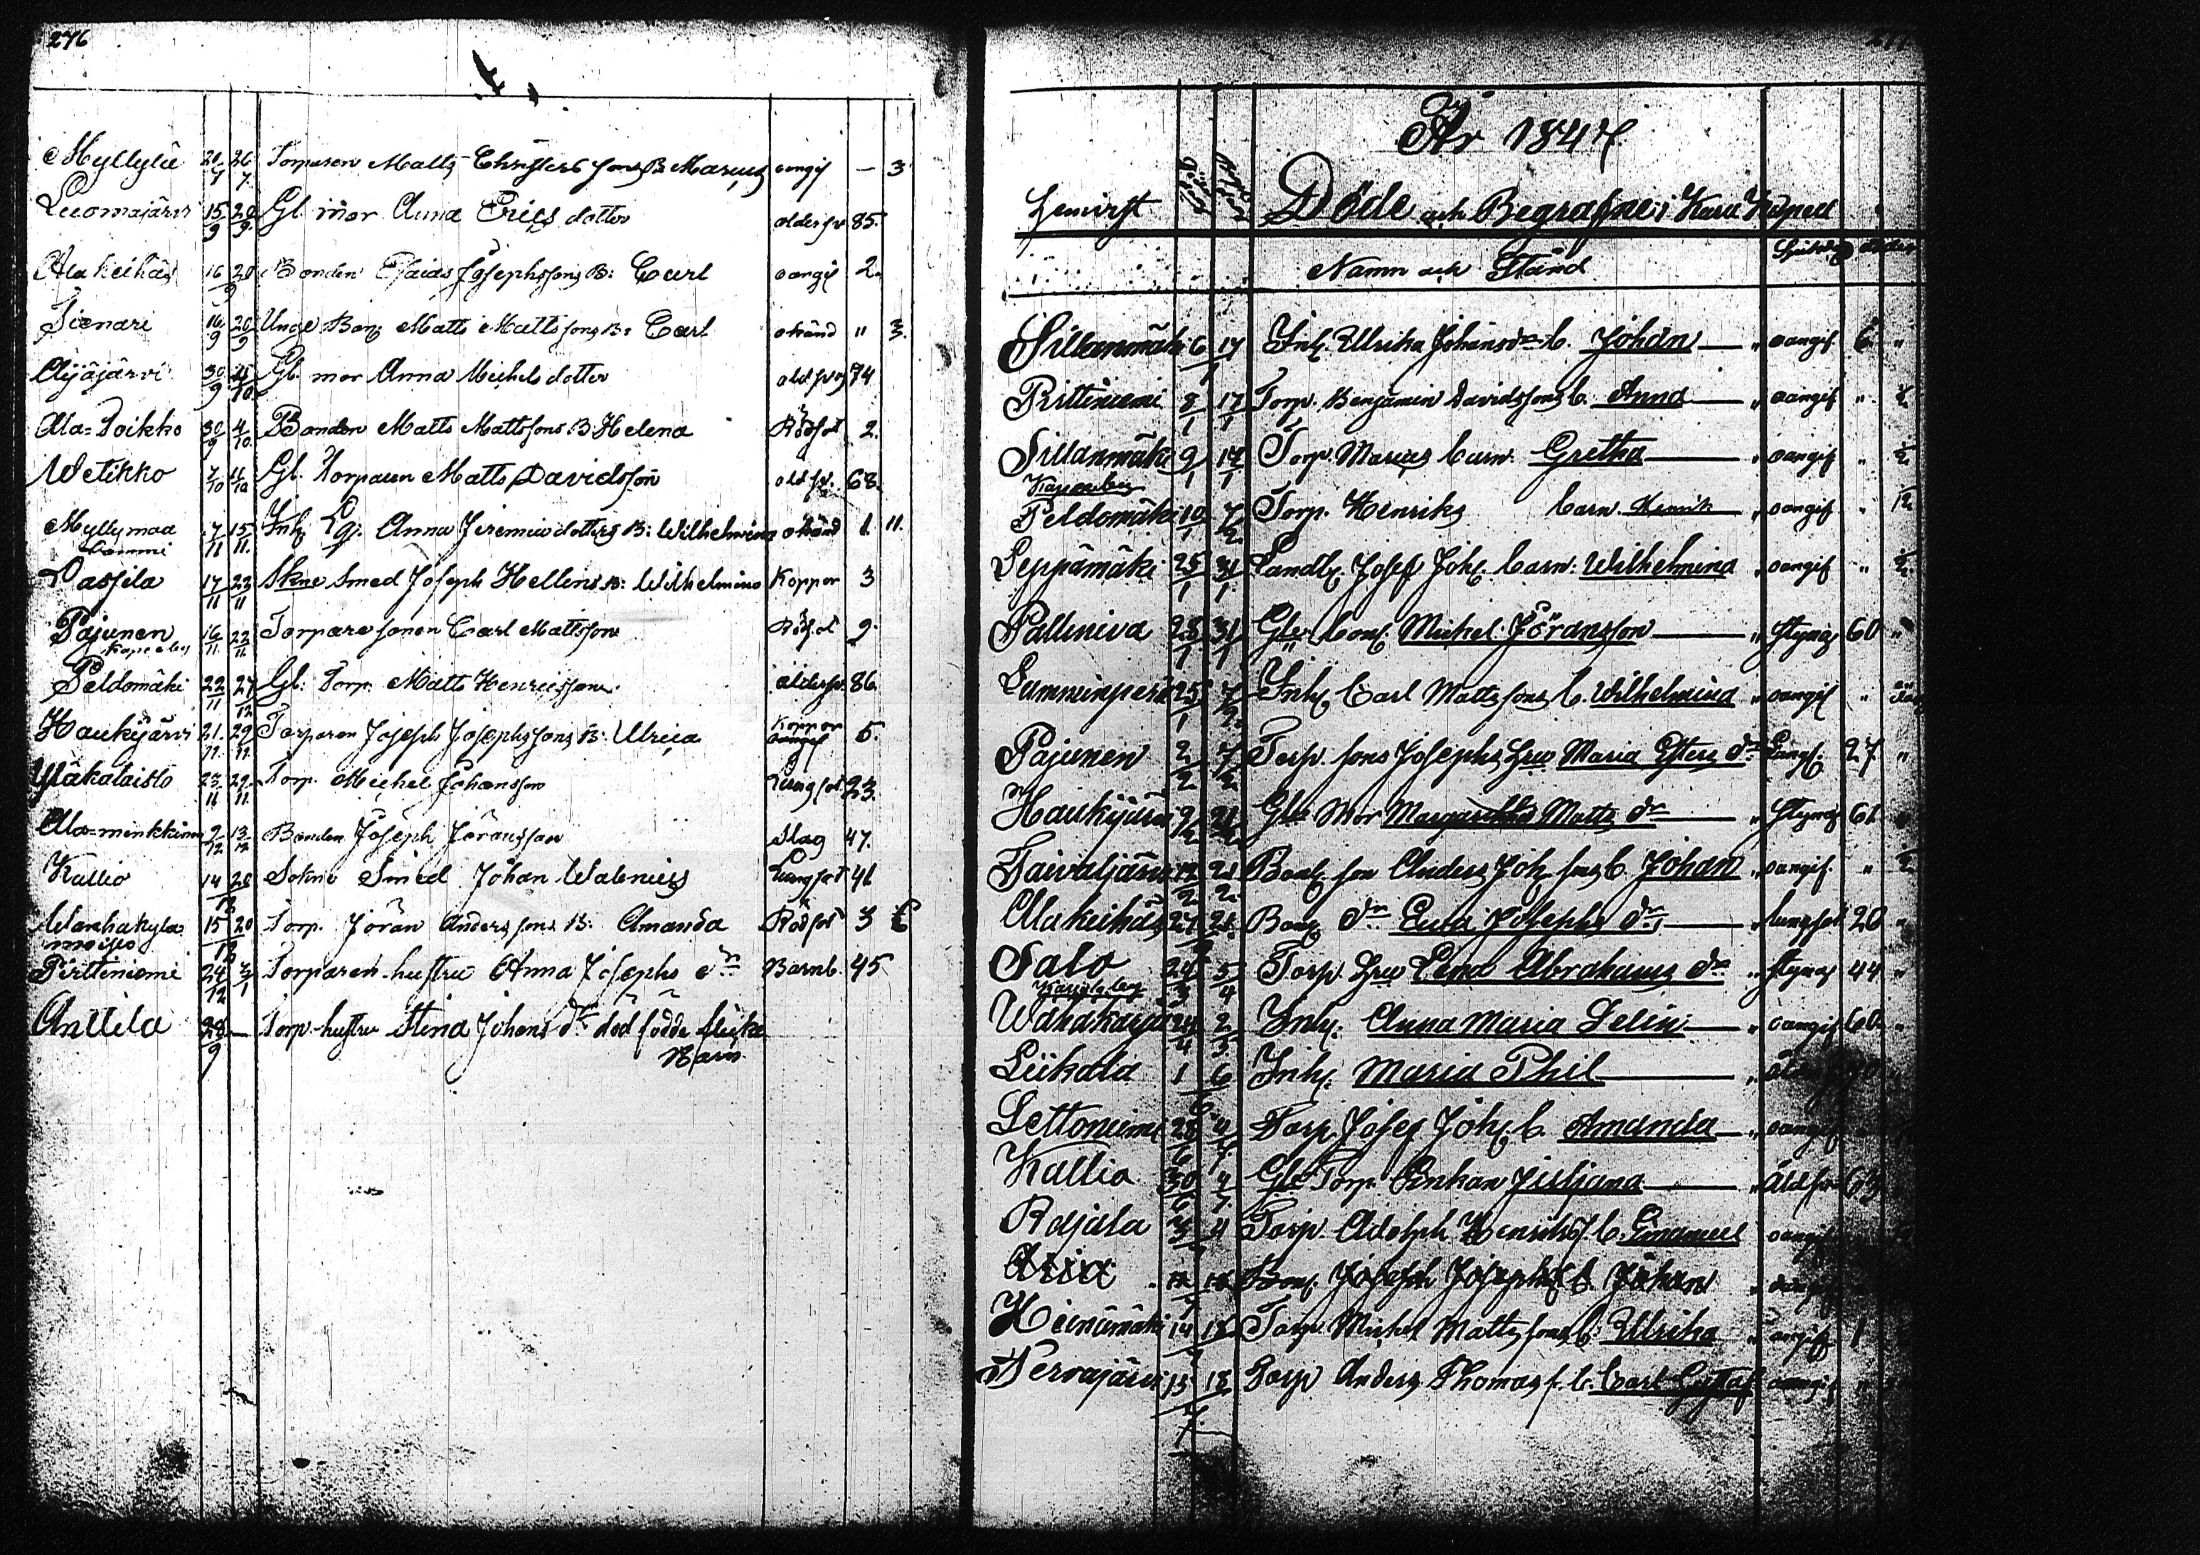 276
Myllylä 20/7 26/7 Torparen Matts Christers sons B. Marcus oangif — 3
Luomajärvi 15/9 20/9 Gl. mor Anna Erics dotter åldersv 85.
Ala keihäs 16 20/9 Bonden Esaias Josephssons B: Carl oangif 2.
Sienari 16/9 20/9 Unge Bon Matts Mattssons B: Carl okänd " 3.
Äijäjärvi 30/9 4/10 Gl. mor Anna Michels dotter 74
Ala-Poikko 30/9 4/10 Bonden Matts Mattssons B: Helena Rödsot 2.
Wetikko 7/10 11/10 Gl. Torparen Matts Davidsson åld sv. 68.
Myllymaa 7/11 15/11 Inh. Anna Jeremiæ dotters B: Wilhelmina okänd 1. 11.
Passila 17/11 22/11 Skne Smed Joseph Hellens B: Wilhelmina Koppor 3
Pajunen 16/11 22/11 Torpare sonen Carl Mattsson Rödsot 9.
Peldomäki 22/11 27/12 Gl. Torp. Matts Henricsson åldersv. 86
Haukijärvi 21/11 29/11 Torparen Joseph Josephssons B: Ulrica Koppor 5.
Yläkalaisto 22/11 29/11 Torp. Michel Johansson Lungsot. 23.
Ala-minkkinen 9/12 13/12 Bonden Joseph Jöransson Slag 47.
Kallio 14 20/12 Sokne Smed Johan Walenius Lungsot 41
Wanhakylä 15 20/12 Torp. Jöran Anderssons B: Amanda Rödsot 3 6
Pirttiniemi 24/12 3/1 Torparen hustru Anna Josephs dr Barnb. 45
Anttila 28/9 — Torp. hustru Stina Johans dr död födde flicke
Barn
År 1847.
Hemvist Döde och Begrafne i Karvia Kapell
Namn och Stånd Sjukdom ålder
Sillanmäki 6 17/1 Inh. Ulrika Johansdr b. Johan " oangif. 6 "
Pittiniemi 8/1 17/1 Torp. Benjamin Davidssons b. Anna " oangif " ½
Sillanmäki 9/1 17/1 Torp. Marcus barn. Gretha " oangif " ½
Peldomäki 10/1 7/2 Torp. Henriks barn. Henrik " oangif "
Leppämäki 25/1 31/1 Landb. Josef Joh. barn: Wilhelmina " oangif " ½
Palliniva 28/1 31/1 Gle bon. Michel Jöransson " styng 60 "
Lumminperä 25/1 7/2 Inh. Carl Mattssons b. Wilhelmina " oangif "
Pajunen 2/2 7/2 Torp. sons Josephs hru Maria Esters dr Lungs. 27 "
Haukijärvi 9/2 21/2 Gle Mor Margaretha Matts dr " styng 61 "
Taivaljärvi 19/2 28/2 Bon son Anders Joh sons b. Johan " oangif. " ½
Alakeihäs 27 28 Bon dr Eva Josephs dr " lungsot 20 "
Salo 24/3 5/4 Torp. hru Lena Abrahams dr " styng 44 "
Wahakarja 24/4 2/5 Inh. Anna Maria Selin " oangif 60. "
Liikala 1 6/6 Inh. Maria Phil "
Lettoniemi 28/6 4/7 Torp. Josef Joh. b. Amanda " oangif
Kallio 30/6 4/7 Gle Torp. Enkan Justjana " Åldsv 63
Rajala 3 4/7 Torp. Adolph Henrikss. b. Emanuel oangif
12 18 Bon. Joseph Josephs. b. Johan " oangif
Heinämäki 14 18/7 Torp. Michel Mattssons b: Ulrika " oangif 1
Tervajärvi 15 18/7 Torp Anders Thomas s. b. Carl Gustaf oangif